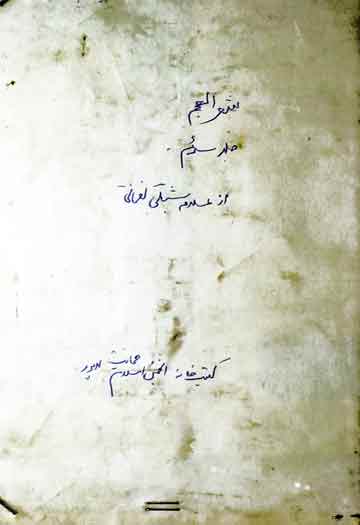 شعر العجم
جلد سوئم
از علامہ شبلی نعمانی
کتب خانہ انجمن اسلامیہ حمایت لاہور